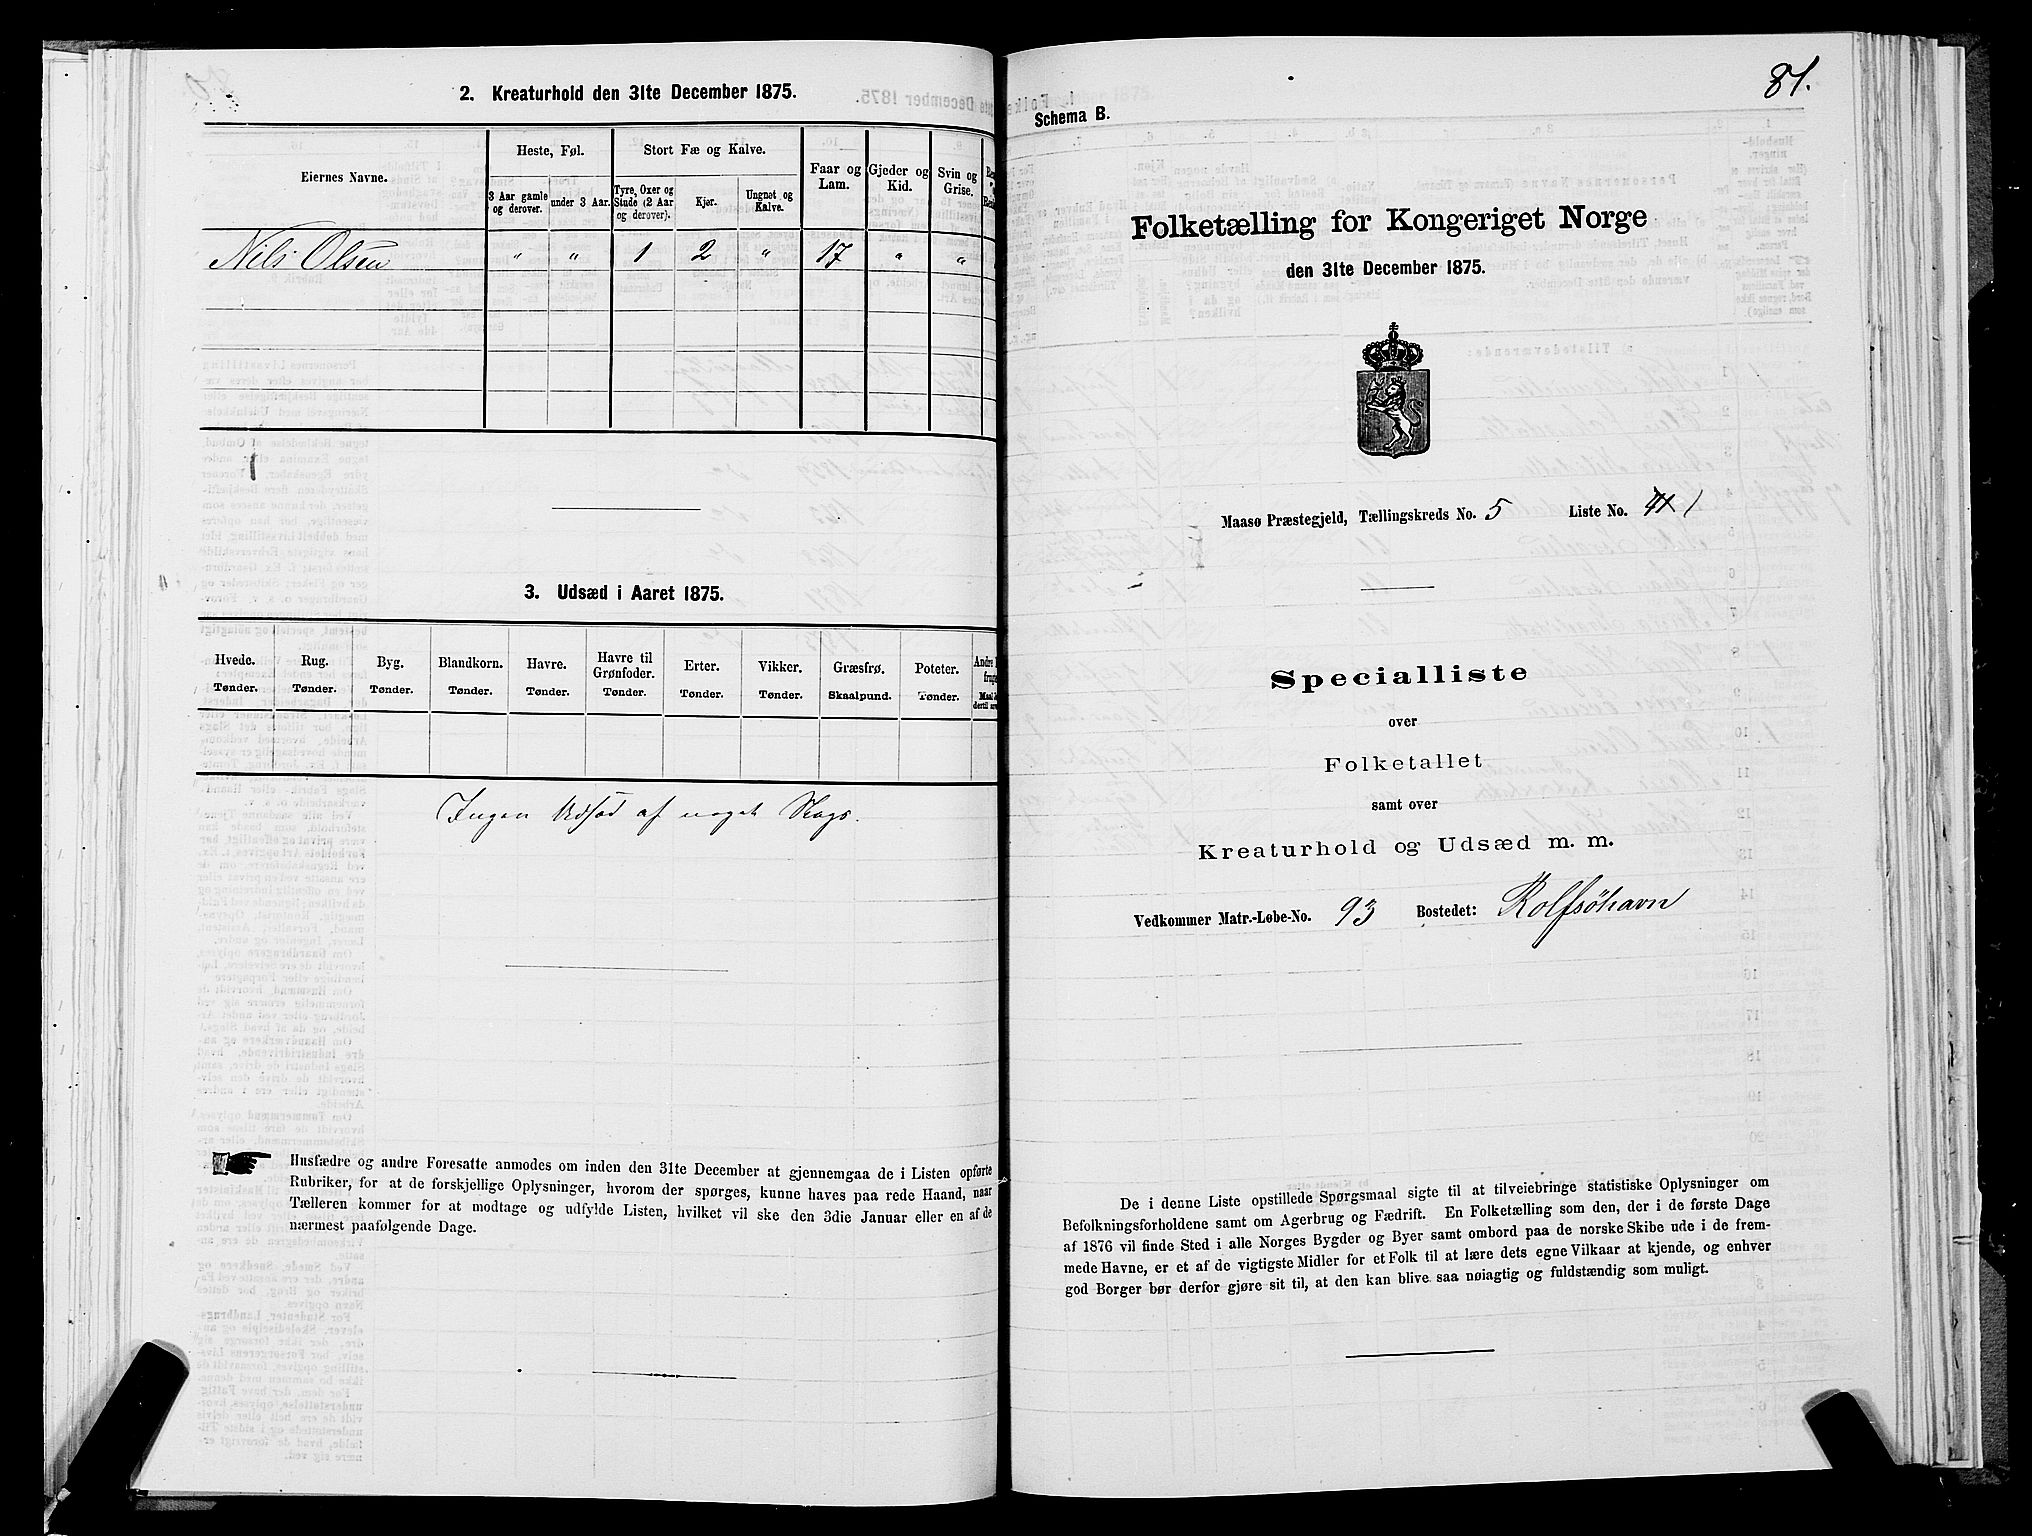 2. Kreaturhold den 31te December 1875.
Eiernes Navne.
Heste, Føl.
Stort Fæ og Kalve.
Faar og Lam.
Gjeder og Kid.
Svin og Grise.
3 Aar gamle og derover.
under 3 Aar.
Tyre, Oxer og Stude (2 Aar og derover).
Kjør.
Ungnøt og Kalve.
Nils Olsen " " 1 2 " 17 " "
3. Udsæd i Aaret 1875.
Hvede. Rug. Byg. Blandkorn. Havre. Havre til Grønfoder. Erter. Vikker. Græsfrø. Poteter.
Tønder. Tønder. Tønder. Tønder. Tønder. Tønder. Tønder. Tønder. Skaalpund. Tønder.
Ingen Udsæd af noget Slags.
Husfædre og andre Foresatte anmodes om inden den 31te December at gjennemgaa de i Listen opførte
Rubriker, for at de forskjellige Oplysninger, hvorom der spørges, kunne haves paa rede Haand, naar
Tælleren kommer for at modtage og udfylde Listen, hvilket vil ske den 3die Januar eller en af de
nærmest paafølgende Dage.
81.
Schema B.
Folketælling for Kongeriget Norge
den 31te December 1875.
Maasø Præstegjeld, Tællingskreds No. 5 Liste No. 1
Specialliste
over
Folketallet
samt over
Kreaturhold og Udsæd m. m.
Vedkommer Matr.-Løbe-No. 93 Bostedet: Rolfsöhavn
De i denne Liste opstillede Spørgsmaal sigte til at tilveiebringe statistiske Oplysninger om
Befolkningsforholdene samt om Agerbrug og Fædrift. En Folketælling som den, der i de første Dage
af 1876 vil finde Sted i alle Norges Bygder og Byer samt ombord paa de norske Skibe ude i de frem-
mede Havne, er et af de vigtigste Midler for et Folk til at lære dets egne Vilkaar at kjende, og enhver
god Borger bør derfor gjøre sit til, at den kan blive saa nøiagtig og fuldstændig som muligt.